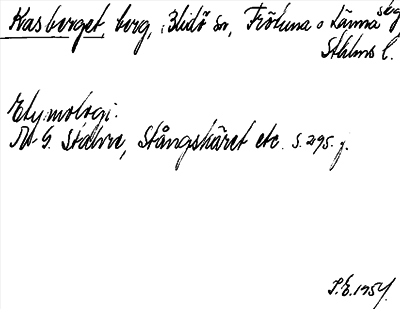 Kasberget, berg, i Blidö sn, Frötuna o Länna skg
Sthlms l.
Etymologi:
N. G. Stahre, Stångskäret etc. s. 295. j.
S.E. 1954.